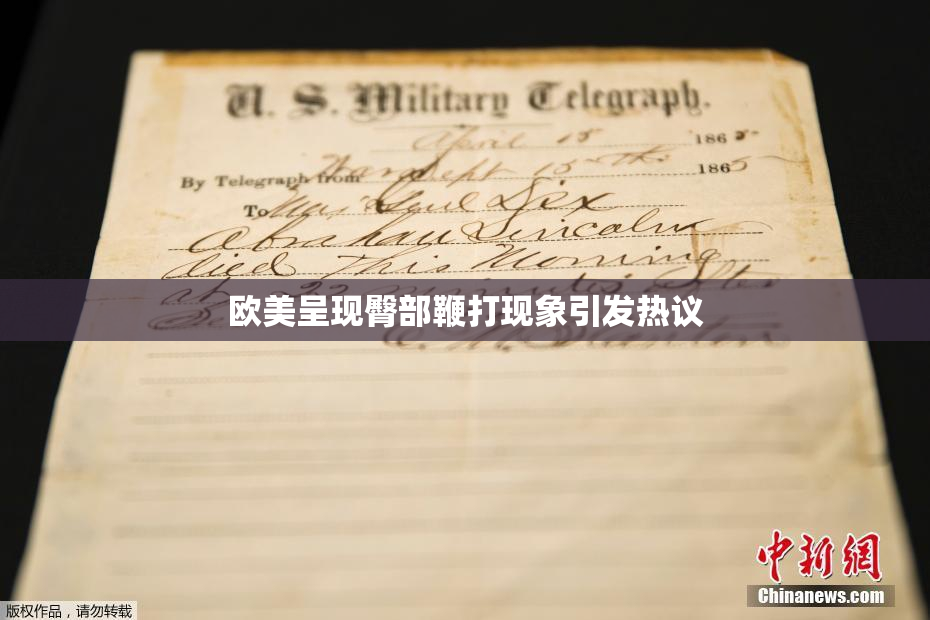 U. S. Military Telegraph.
April 15 1865
By Telegraph from War Dept 15th 1865
To Maj Genl Dix
Abraham Lincoln
died This Morning
at 22 minutes after
欧美呈现臀部鞭打现象引发热议
E. M. Stanton
中新网
Chinanews.com
版权作品,请勿转载